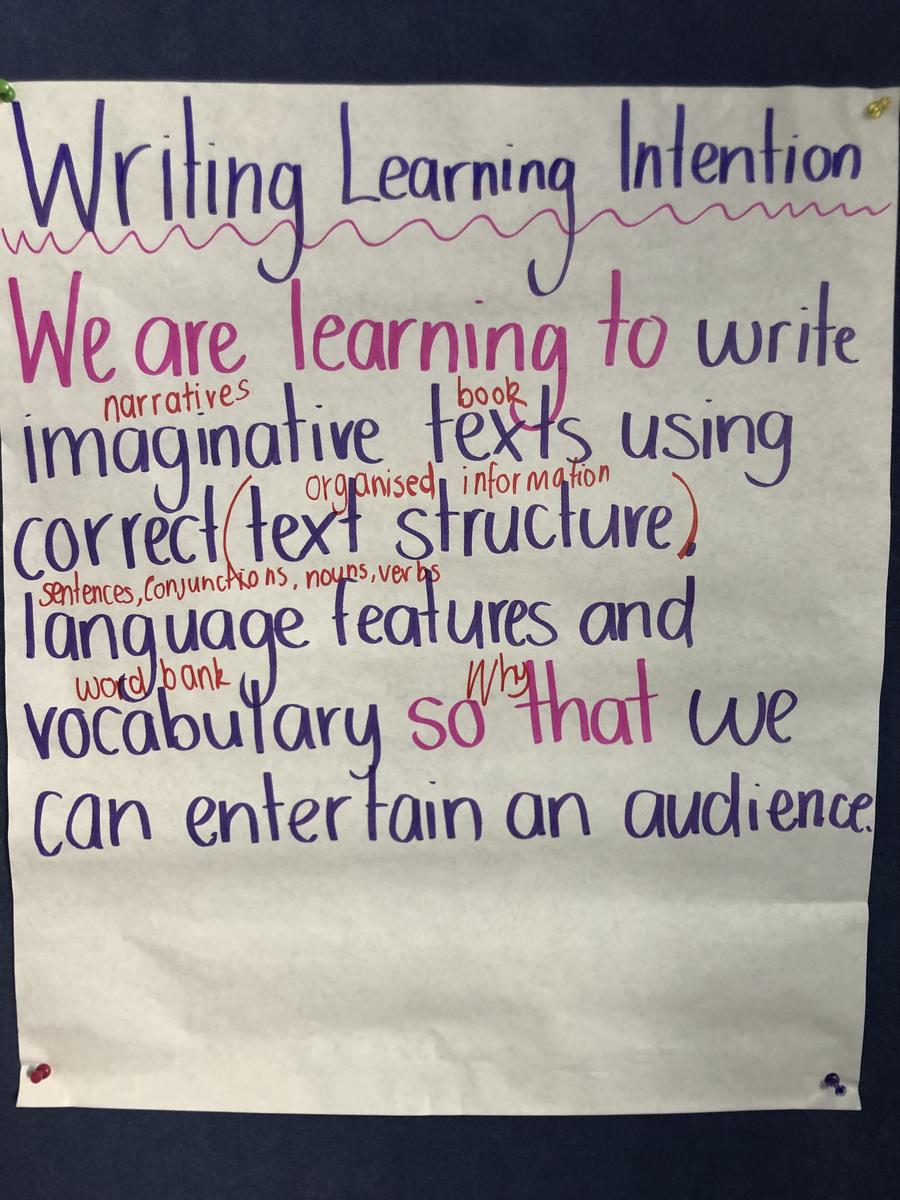 Writing Learning Intention
We are learning to write
narratives book
imaginative texts using
organised information
correct (text structure),
sentences, conjunctions, nouns, verbs
language features and
word bank Why
vocabulary so that we
can entertain an audience.